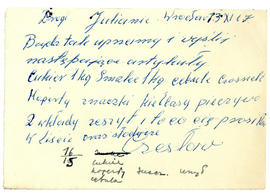 Drogi Julianie Wrocław 13 XI 67
Bądź tak uprzejmy i wyślij
następujące artykuły
cukier 1 kg smalec 1 kg cebule czosnek
koperty znaczki kiełbasę pieczywo
2 wkłady zeszyt i to co cię prosiłem
w liście oraz słodycze
Czesław
16
15
cukier
koperty
cebula